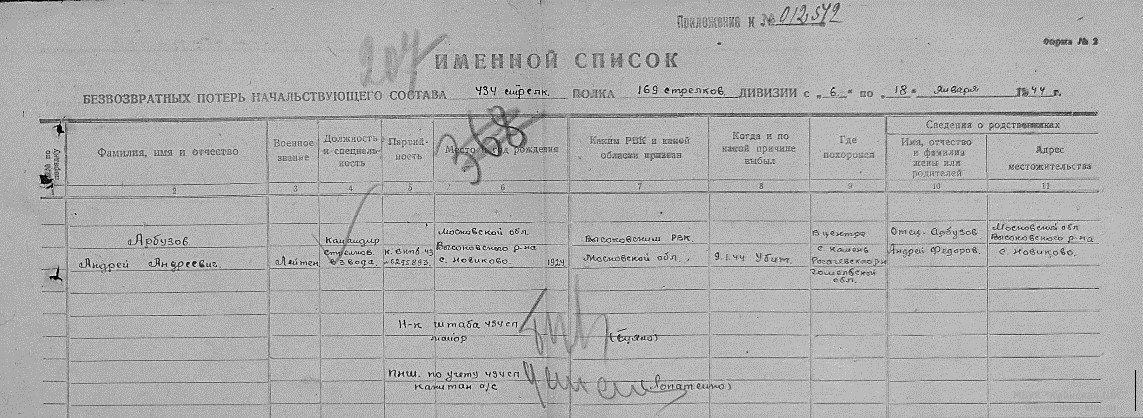 Приложение к № 012542
Форма № 2
207
ИМЕННОЙ СПИСОК
БЕЗВОЗВРАТНЫХ ПОТЕРЬ НАЧАЛЬСТВУЮЩЕГО СОСТАВА 434 стрелк. ПОЛКА 169 стрелков. ДИВИЗИИ с „6" по „18" января 1944 г.
368
Фамилия, имя и отчество
Военное звание
Должность и специальность
Партийность
Место и год рождения
Каким РВК и какой области призван
Когда и по какой причине выбыл
Где похоронен
Сведения о родственниках
Имя, отчество и фамилия жены или родителей
Адрес местожительства
2 3 4 5 6 7 8 9 10 11
Арбузов
Андрей Андреевич.
Лейтен
Командир
стрелков.
взвода.
к. ВКПб 43
6295893.
Московской обл
Высоковского р-на
с. Новиково. 1924
Высоковским РВК.
Московской обл.
9.1.44 Убит.
В центре
с Камень
Рогачевского р-н
Гомельской
обл.
Отец Арбузов
Андрей Федоров.
Московской обл
Высоковского р-на
с. Новиково.
Н-к штаба 434 сп
майор
ПНШ. по учету 434 сп
капитан а/с